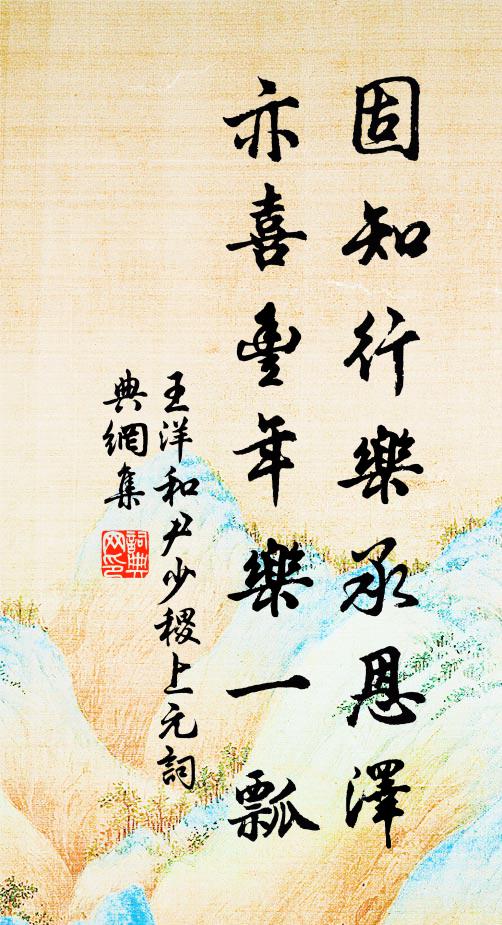 固知行樂承恩澤
亦喜豐年樂一瓢
王洋和尹少稷上元詞
典網集
詞典
网印